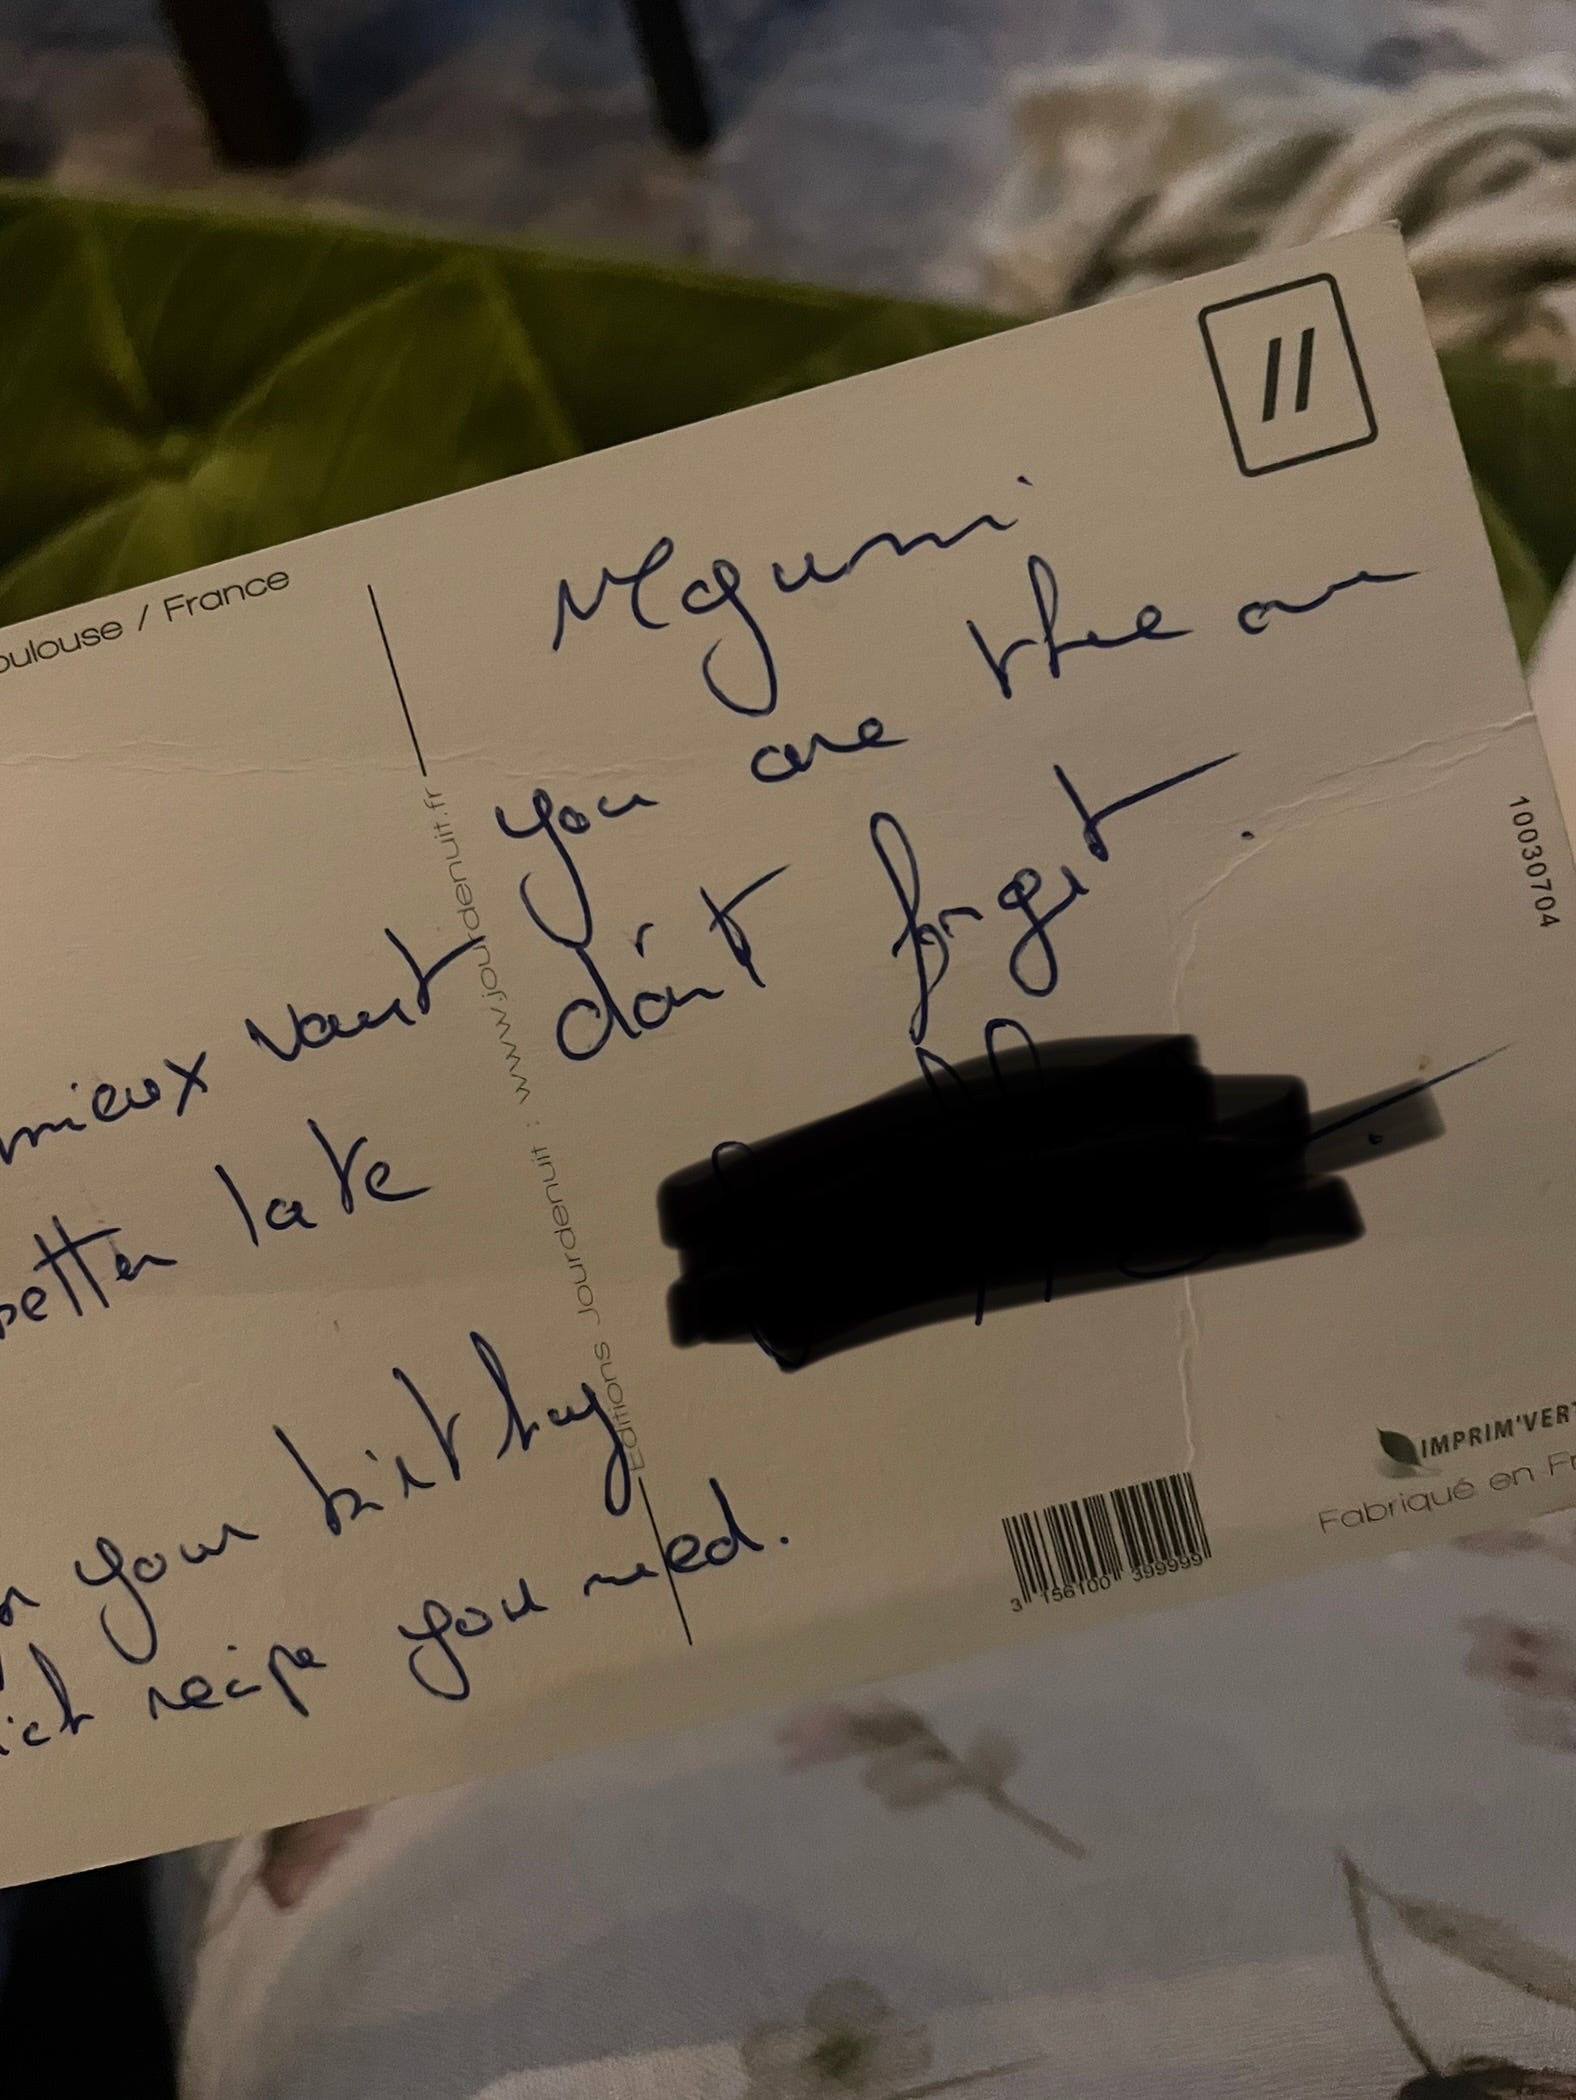 oulouse / France
mieux vaut
better late
your birthday
ich recipe you need.
Editions Jourdenuit : www.jourdenuit.fr
Megumi
you are thee one
don't forget.
10030704
IMPRIM'VERT
Fabriqué en Fr
3 156100 399999